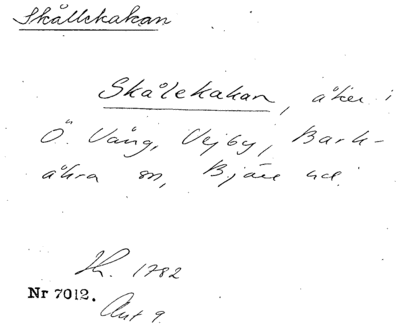 Skållekakan
Skålekakan, åker i
Ö. Vång, Vejby, Bark-
åkra sn, Bjäre hd.
Sk. 1782
Nr 7012.
Akt 9